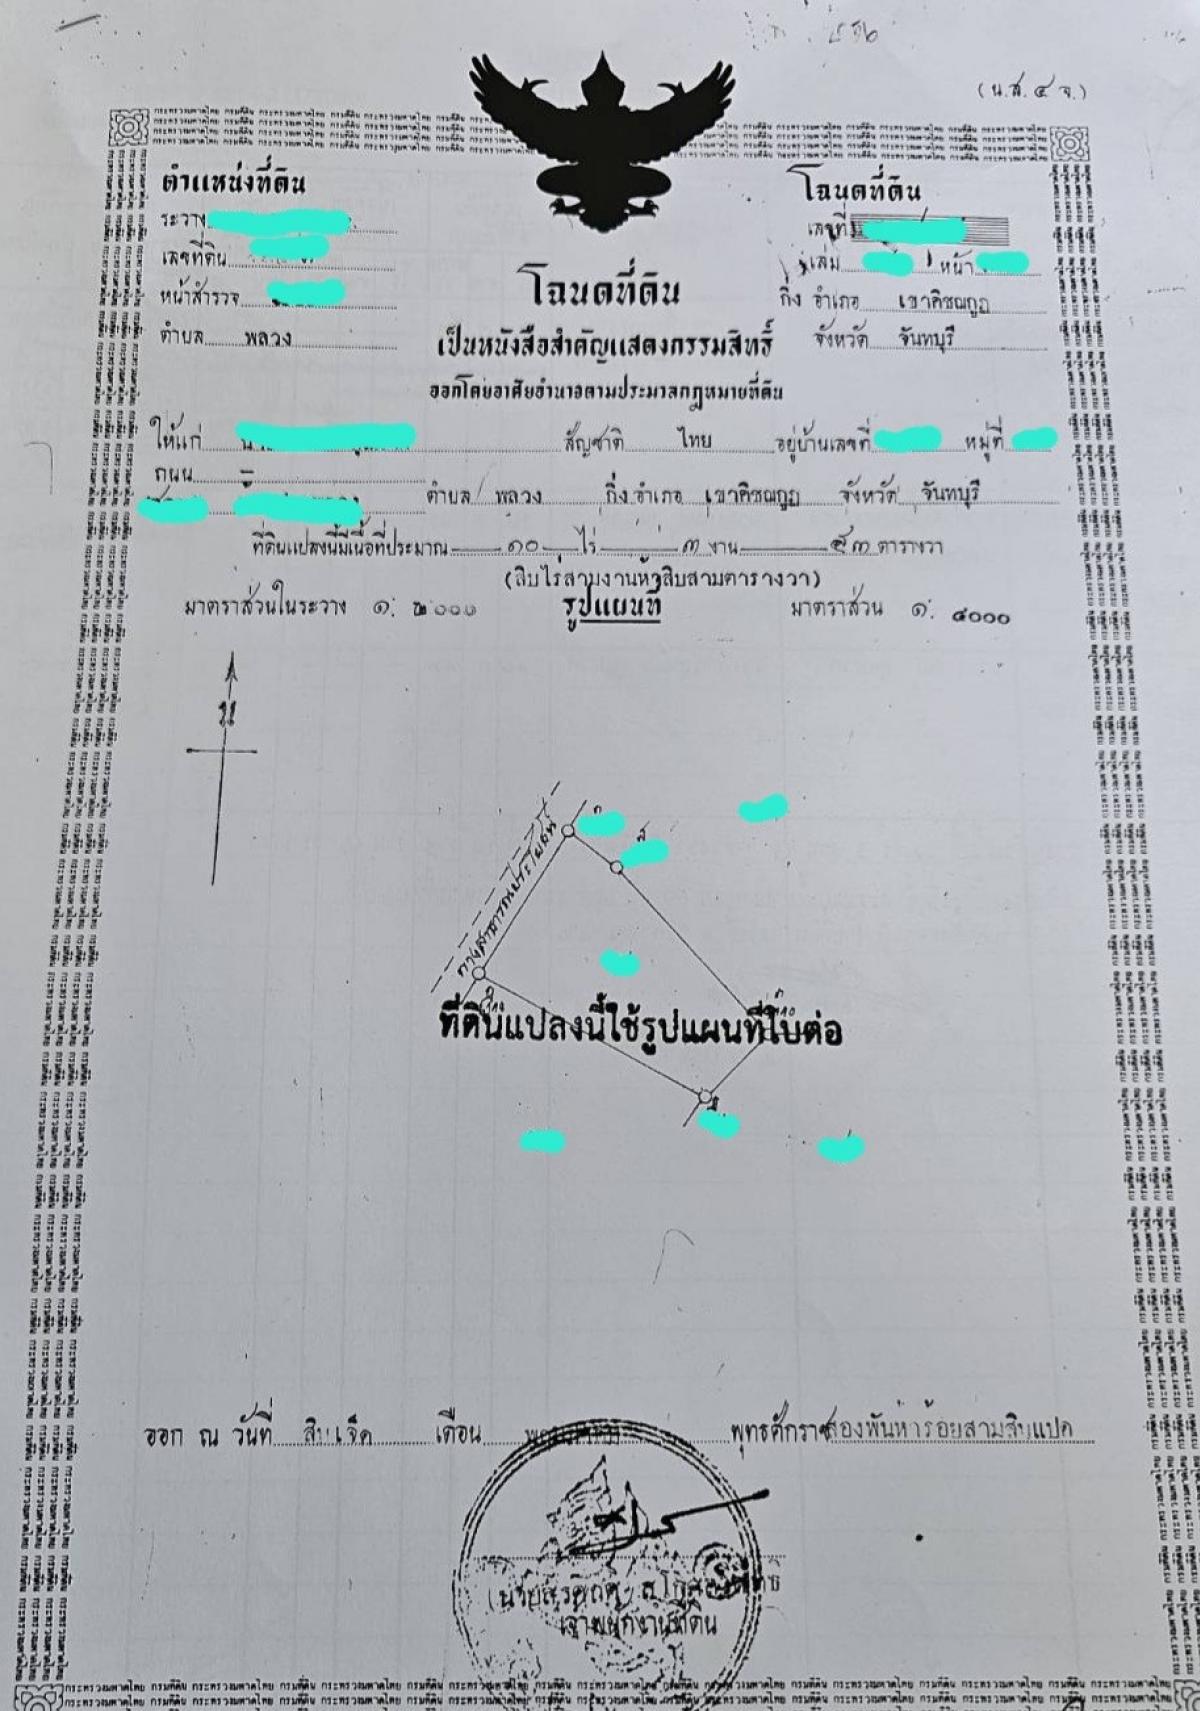 (น.ส.๔ จ.)
ตำแหน่งที่ดิน
ระวาง
เลขที่ดิน
หน้าสำรวจ
ตำบล พลวง
โฉนดที่ดิน
เลขที่
เล่ม หน้า
กิ่ง อำเภอ เขาคิชฌกูฏ
จังหวัด จันทบุรี
โฉนดที่ดิน
เป็นหนังสือสำคัญแสดงกรรมสิทธิ์
ออกโดยอาศัยอำนาจตามประมวลกฎหมายที่ดิน
ให้แก่ สัญชาติ ไทย อยู่บ้านเลขที่ หมู่ที่
ถนน -
ตำบล พลวง กิ่ง อำเภอ เขาคิชฌกูฏ จังหวัด จันทบุรี
ที่ดินแปลงนี้มีเนื้อที่ประมาณ ๑๐ ไร่ ๓ งาน ๕๓ ตารางวา
(สิบไร่สามงานห้าสิบสามตารางวา)
มาตราส่วนในระวาง ๑: ๒๐๐๐ รูปแผนที่ มาตราส่วน ๑: ๔๐๐๐
น
ทางสาธารณประโยชน์
ที่ดินแปลงนี้ใช้รูปแผนที่ใบต่อ
ออก ณ วันที่ สิบเจ็ด เดือน พุทธศักราช สองพันห้าร้อยสามสิบแปด
เจ้าพนักงานที่ดิน
กระทรวงมหาดไทย กรมที่ดิน กระทรวงมหาดไทย กรมที่ดิน